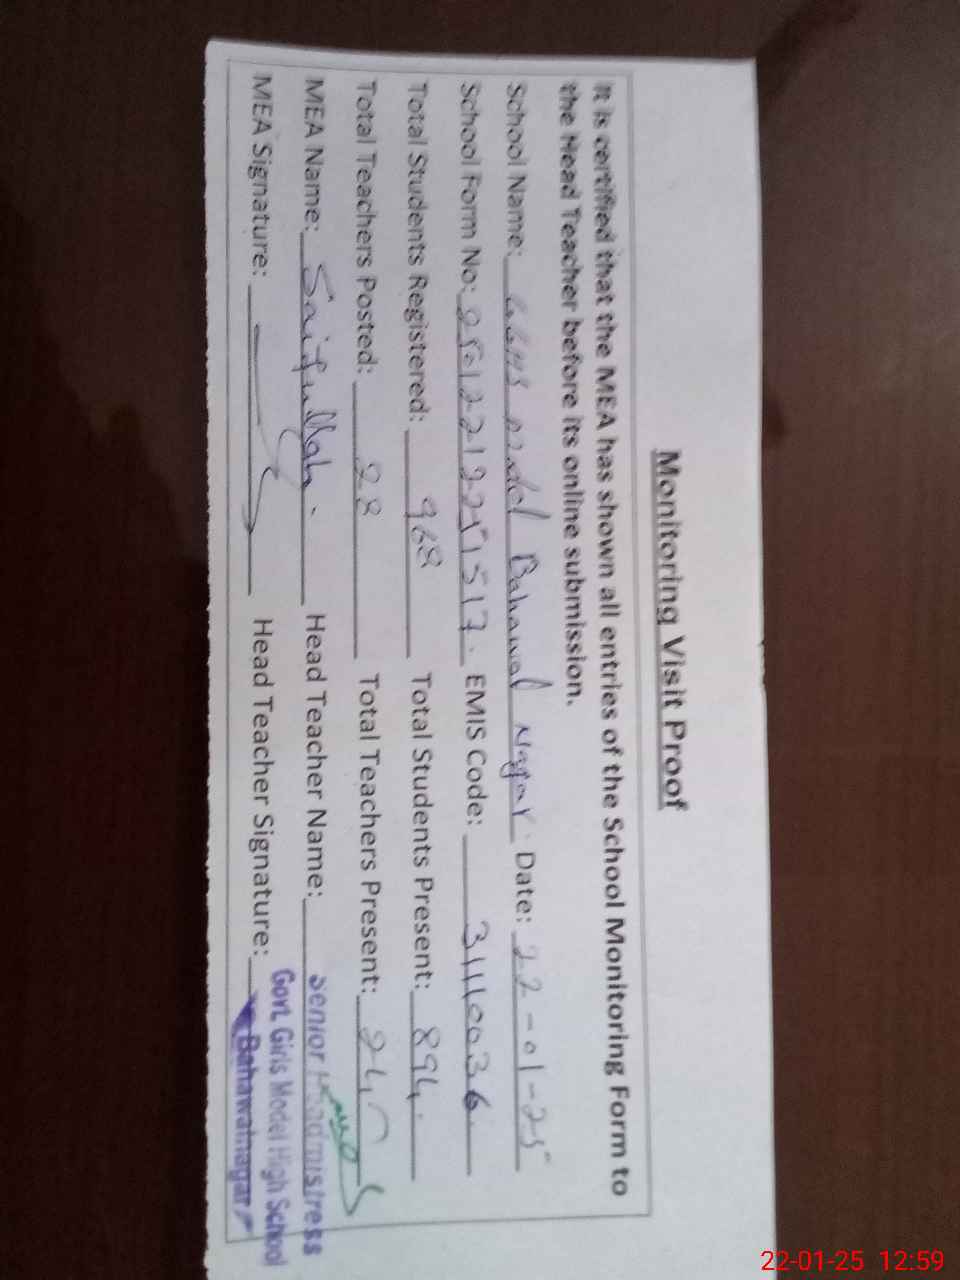 Monitoring Visit Proof
It is certified that the MEA has shown all entries of the School Monitoring Form to
the Head Teacher before its online submission.
School Name: GGHS Model Bahawal Nagar. Date: 22-01-25
School Form No: EMIS Code: 31110036
Total Students Registered: 968 Total Students Present: 894
Total Teachers Posted: 28 Total Teachers Present: 24
MEA Name: Saifullah Head Teacher Name:
MEA Signature: Head Teacher Signature:
Senior Headmistress
Govt. Girls Model High School
Bahawalnagar
22-01-25 12:59